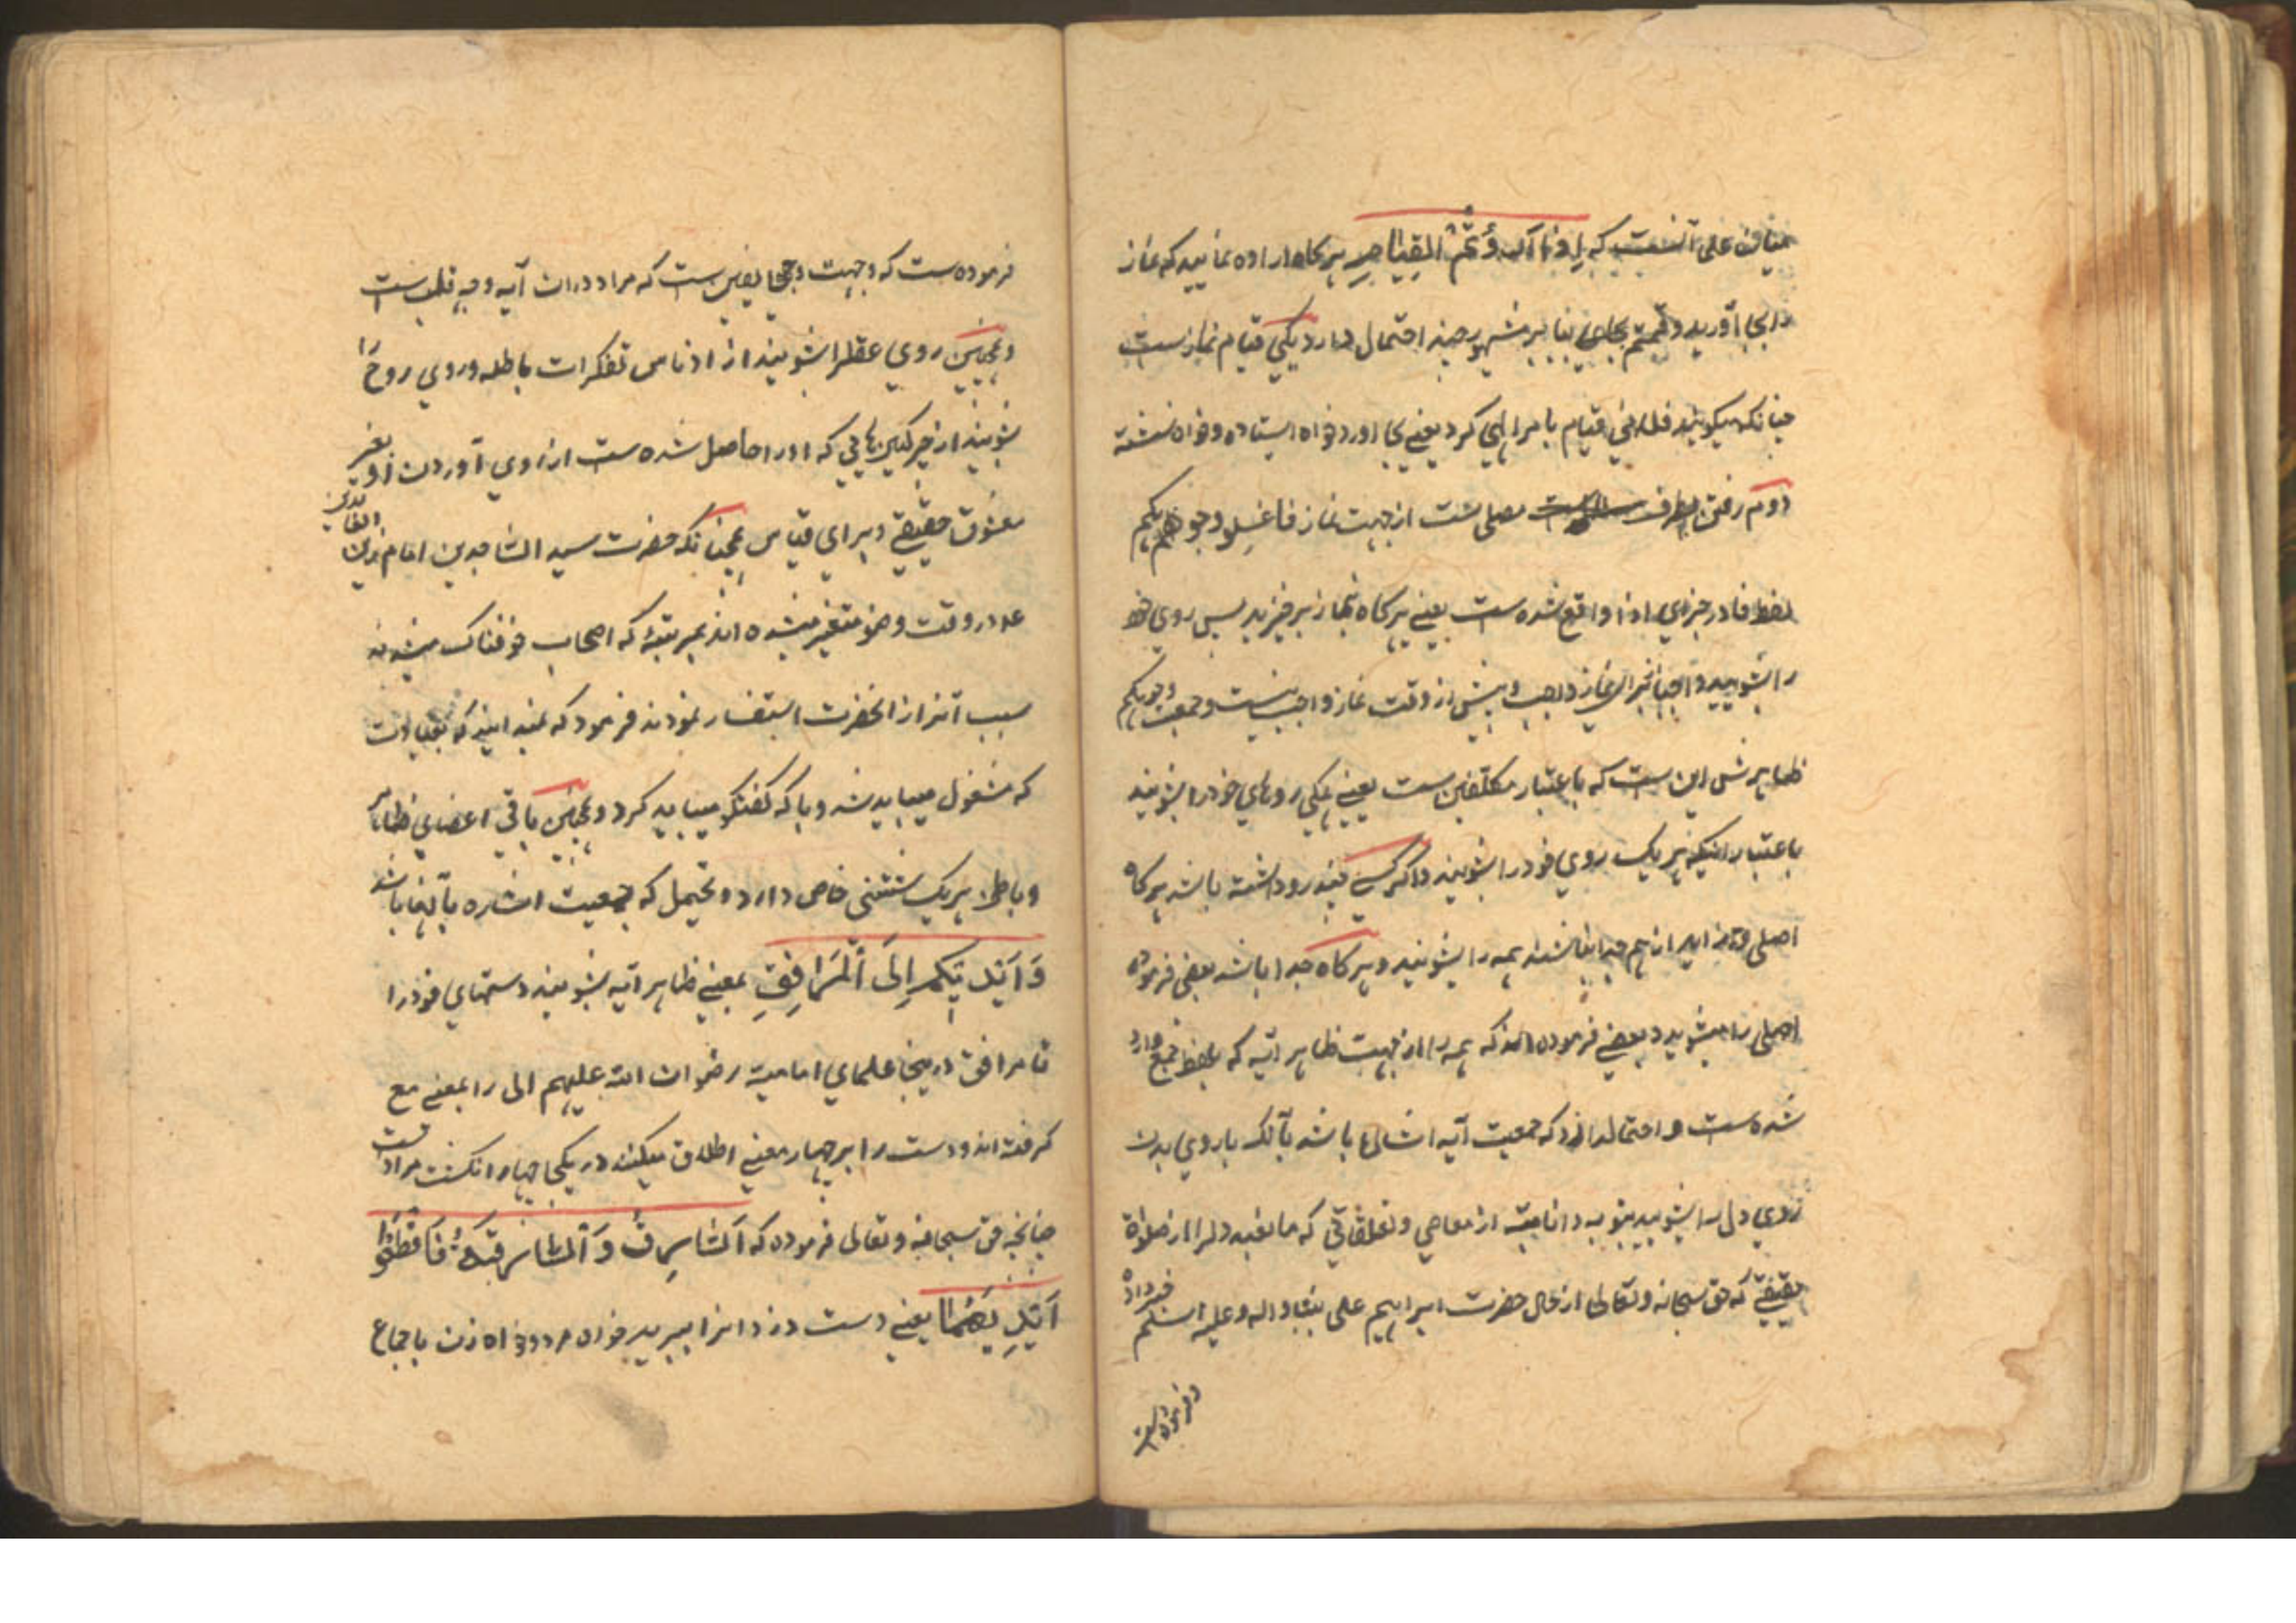 که اذا قمتم الی هرکاه اراده نمایید که نماز
را بجا آورید و قمتم بنابر مشهور چند احتمال دارد یکی قیام نمازست
چنانکه میکویند فلانی قیام بامر الهی کرد یعنی بجا اورد خواه ایستاده و خواه نشسته
دوم رفتن بطرف مصلی است از جهت نماز فاغسلوا وجوهکم
لفظ فا در جزای اذا واقع شده ست یعنی هرکاه بنماز برخیزید پس روی خود
را بشویید نماز واجب و پیش از وقت نماز واجب نیست و جمعیت وجوهکم
ظاهرش این ست که باعتبار مکلفین ست یعنی همکی روهای خود را بشویند
باعتبار اینکه هر یک روی خود را بشویند و اکر کسی چند رو داشته باشد هرکاه
اصلی و زاید از هم جدا نباشند همه را بشویند و هرکاه جدا باشد بعضی فرموده
اصلی را میشوید و بعضی فرموده اند که همه را از جهت ظاهر آیه که بلفظ جمع وارد
شده ست و احتمال دارد که جمعیت آیه اشاره باشد بآنکه با روی بدن
روی دل را بشویید بتوبه و انابه از معاصی و تعلقاتی که مانعند دلرا از صلاة
حقیقی که حق سبحانه و تعالی از حال حضرت ابراهیم علی نبینا و اله و علیه السلم خبر داده
و فرموده است
فرموده ست که وجهت وجهی یقین ست که مراد دران آیه وجه قلب ست
و همچنین روی عقلرا بشویند از ادناس تفکرات باطله و روی روح را
بشویند از چرکینهایی که اورا حاصل شده ست از روی آوردن او بغیر
معشوق حقیقی و برای قیاس همچنانکه حضرت سید الساجدین امام زین العابدین
ع در وقت وضو متغیر میشده اند بمرتبهٔ که اصحاب خوفناک میشدند
سبب آنرا از انحضرت استفسار نمودند فرمود که نمیدانید که بعبادت
که مشغول میباید شد و با که کفتکو میباید کرد و همچنین باقی اعضای ظاهر
و باطن هر یک شستنی خاص دارد و یحتمل که جمعیت اشاره بآنها باشد
وَاَیْدِیَکُمْ اِلَی اَلْمَرَافِقِ بمعنی ظاهر آیه بشویند دستهای خود را
تا مرافق درینجا علمای امامیه رضوان الله علیهم الی را بمعنی مع
کرفته اند و دست را بر چهار معنی اطلاق میکنند در یکجا چهار انکشت مرادست
چنانچه حق سبحانه و تعالی فرموده که اَلسَّارِقُ وَاَلسَّارِقَةُ فَاقْطَعُوا
اَیْدِیَهُمَا یعنی دست دزدانرا ببرید خواه مرد و خواه زن باجماع